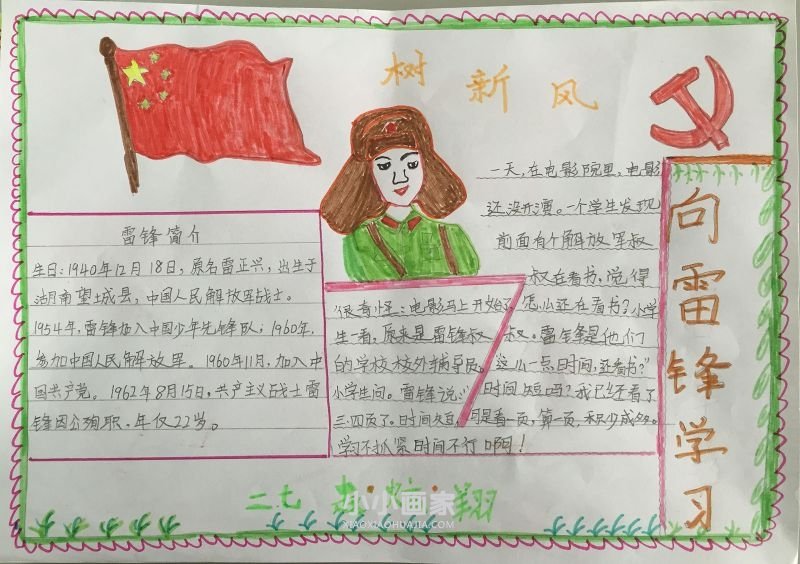 树新风
雷锋简介
生日:1940年12月18日,原名雷正兴,出生于
湖南望城县,中国人民解放军战士。
1954年,雷锋加入中国少年先锋队;1960年,
参加中国人民解放军。1960年11月,加入中
国共产党。1962年8月15日,共产主义战士雷
锋因公殉职,年仅22岁。
一天,在电影院里,电影
还没开演。一个学生发现
前面有个解放军叔
叔在看书,觉得
很奇怪:电影马上开始了,怎么还在看书?小学
生一看,原来是雷锋叔叔。雷锋是他们
的学校校外辅导员。"这么一点时间,还看书?"
小学生问。雷锋说:"时间短吗?我已经看了
三、四页了。时间短,可是看一页,算一页,积少成多。
学习不抓紧时间不行啊!
向雷锋学习
二七
翔
小小画家
XIAOXIAOHUAJIA.COM